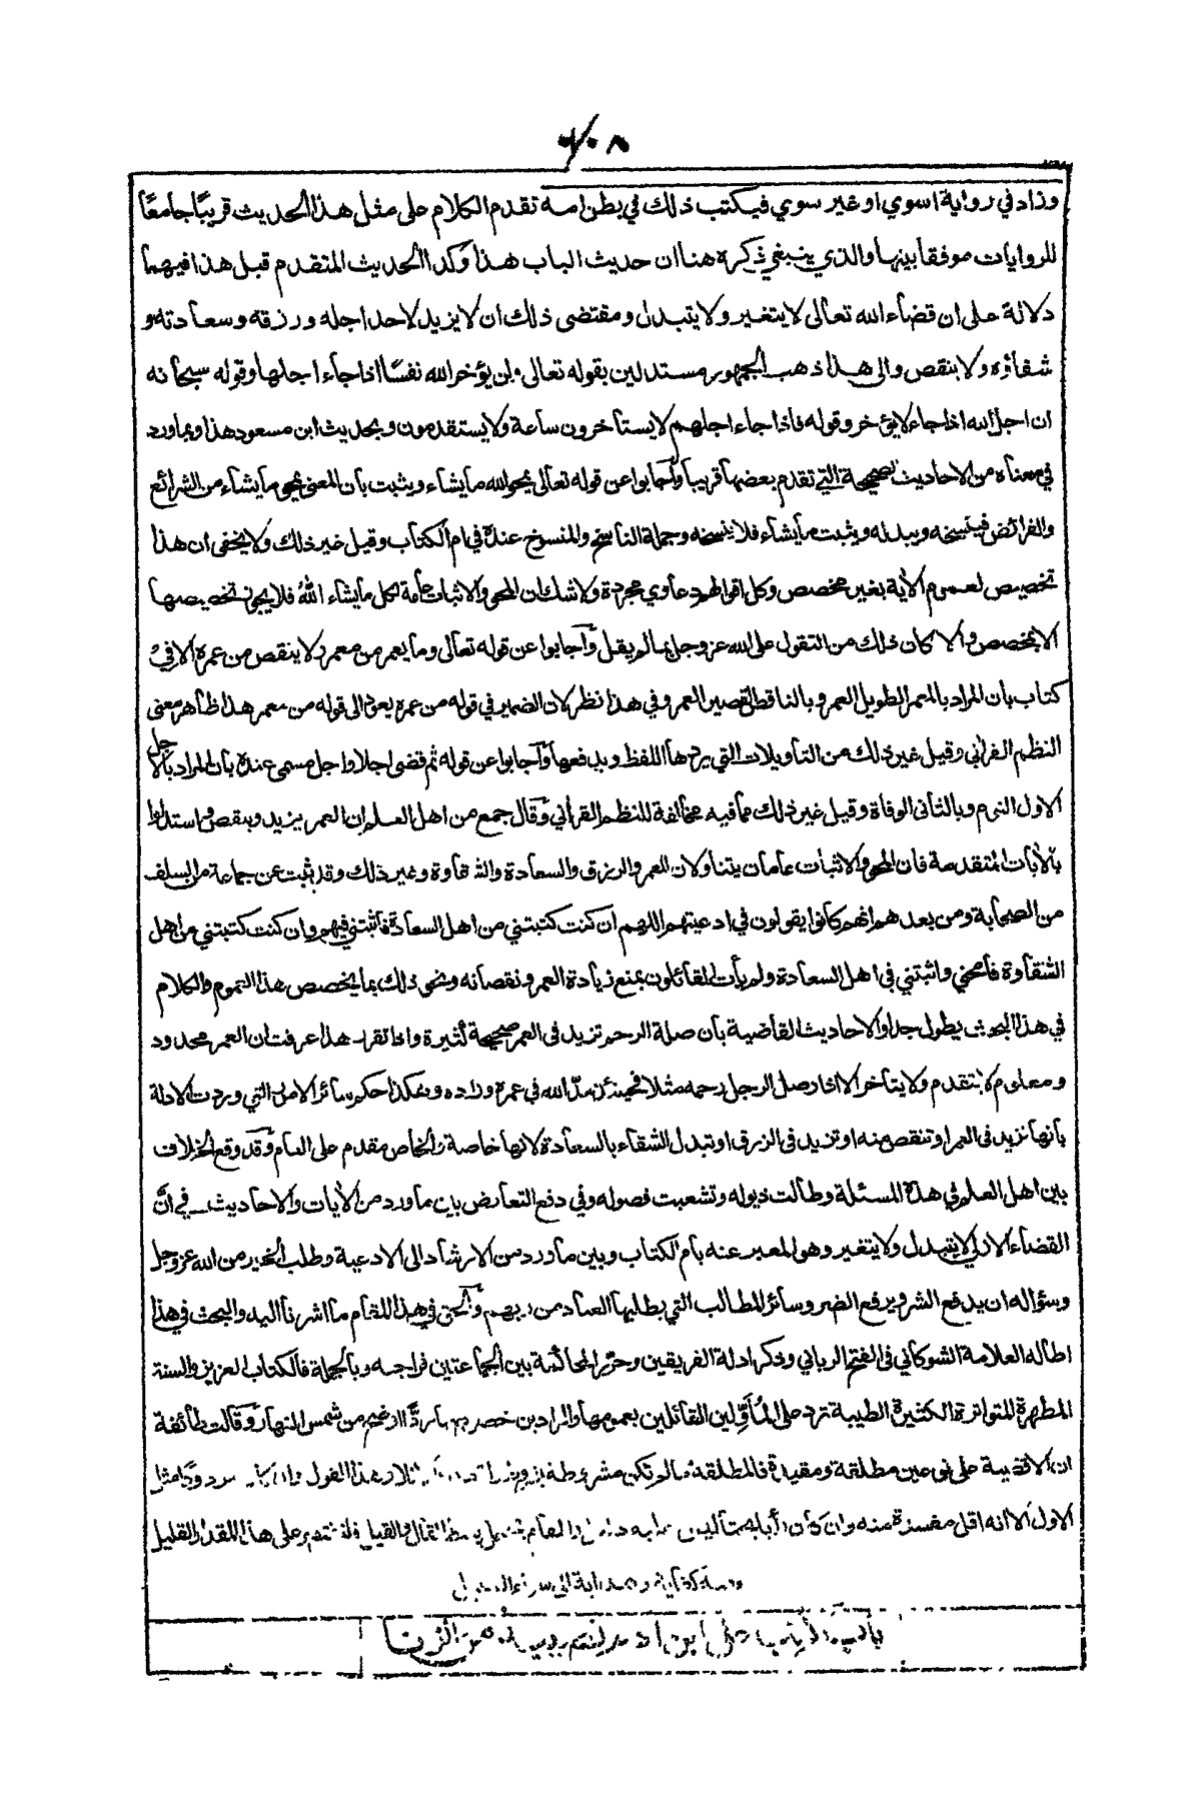 وزاد في رواية اسوي او غير سوي فيكتب ذلك في بطن امه تقدم الكلام على مثل هذا الحديث قريبًا جامعًا
للروايات موفقا بينها والذي ينبغي ذكره هنا ان حديث الباب هذا وكذا الحديث المتقدم قبل هذا فيهما
دلالة على ان قضاء الله تعالى لا يتغير ولا يتبدل ومقتضى ذلك ان لا يزيد لاحد اجله ورزقه وسعادته و
شقاؤه ولا ينقص والى هذا ذهب الجمهور مستدلين بقوله تعالى ولن يؤخر الله نفسًا اذا جاء اجلها وقوله سبحانه
ان اجل الله اذا جاء لا يؤخر وقوله فاذا جاء اجلهم لا يستأخرون ساعة ولا يستقدمون وبحديث ابن مسعود هذا وبما ورد
في معناه من الاحاديث الصحيحة التي تقدم بعضها قريبا وأجابوا عن قوله تعالى يمحو الله ما يشاء ويثبت بان المعنى يمحو ما يشاء من الشرائع
والفرائض فينسخه ويبدله ويثبت ما يشاء فلا ينسخه وجملة الناسخ والمنسوخ عنده في ام الكتاب وقيل غير ذلك ولا يخفى ان هذا
تخصيص لعموم الأية بغير مخصص وكل اقوالهم دعاوي مجردة ولا شك ان المحو والاثبات عامة لكل ما يشاء اللهُ فلا يجوز تخصيصها
الا بمخصص والا كان ذلك من التقول على الله عز وجل بما لم يقل وأجابوا عن قوله تعالى وما يعمر من معمر ولا ينقص من عمره الا في
كتاب بان المراد بالمعمر الطويل العمر وبالناقص القصير العمر وفي هذا نظر لان الضمير في قوله من عمره يعود الى قوله من معمر هذا ظاهر معنى
النظم القراني وقيل غير ذلك من التأويلات التي يردها اللفظ ويدفعها وأجابوا عن قوله ثم قضى اجلا واجل مسمى عنده بان المراد بالاجل
الاول النوم وبالثاني الوفاة وقيل غير ذلك مما فيه مخالفة للنظم القرأني وقال جمع من اهل العلم ان العمر يزيد وينقص واستدلوا
بالأيات المتقدمة فان المحو والاثبات عامان يتناولان العمر والرزق والسعادة والشقاوة وغير ذلك وقد ثبت عن جماعة من السلف
من الصحابة ومن بعدهم انهم كانوا يقولون في ادعيتهم اللهم ان كنت كتبتني من اهل السعادة فأثبتني فيهم وان كنت كتبتني من اهل
الشقاوة فامحني واثبتني في اهل السعادة ولم يأت القائلون بمنع زيادة العمر ونقصانه ونحو ذلك بما يخصص هذا العموم والكلام
في هذا البحث يطول جدا والاحاديث القاضية بان صلة الرحم تزيد في العمر صحيحة كثيرة واذا تقرر هذا عرفت ان العمر محدود
ومعلوم لا يتقدم ولا يتأخر الا اذا وصل الرجل رحمه مثلا فحينئذ مدّ الله في عمره وزاده وهكذا حكم سائر الامور التي وردت الادلة
بانها تزيد في العمر او تنقص منه او تزيد في الرزق او تبدل الشقاء بالسعادة لانها خاصة والخاص مقدم على العام وقد وقع الخلاف
بين اهل العلم في هذه المسئلة وطالت ذيوله وتشعبت فصوله وفي دفع التعارض بين ما ورد من الأيات والاحاديث في انّ
القضاء الازلي لا يتبدل ولا يتغير وهو المعبر عنه بام الكتاب وبين ما ورد من الارشاد الى الادعية وطلب الخير من الله عز وجل
وسؤاله ان يدفع الشر ويرفع الضر وسائر المطالب التي يطلبها العباد من ربهم والحق في هذا المقام ما اشرنا اليه والبحث في هذا
اطاله العلامة الشوكاني في الفتح الرباني وذكر ادلة الفريقين وحرّر المحاكمة بين الجماعتين فراجعه وبالجملة فالكتاب العزيز والسنة
المطهرة المتواترة الكثيرة الطيبة ترد على المُأوِّلين القائلين بعمومها والرادين خصوصها ردًّا اوضح من شمس النهار وقالت طائفة
ان الاقضية على نوعين مطلقة ومقيدة فالمطلقة ما لم تكن مشروطة هذا القول
الاول الا انه اقل مفسدة منه وان كان العام القال والقيل فلنقتصر على هذا المقدار القليل
وهداية الى سواء السبيل
باب على ابن ادم من الزنا